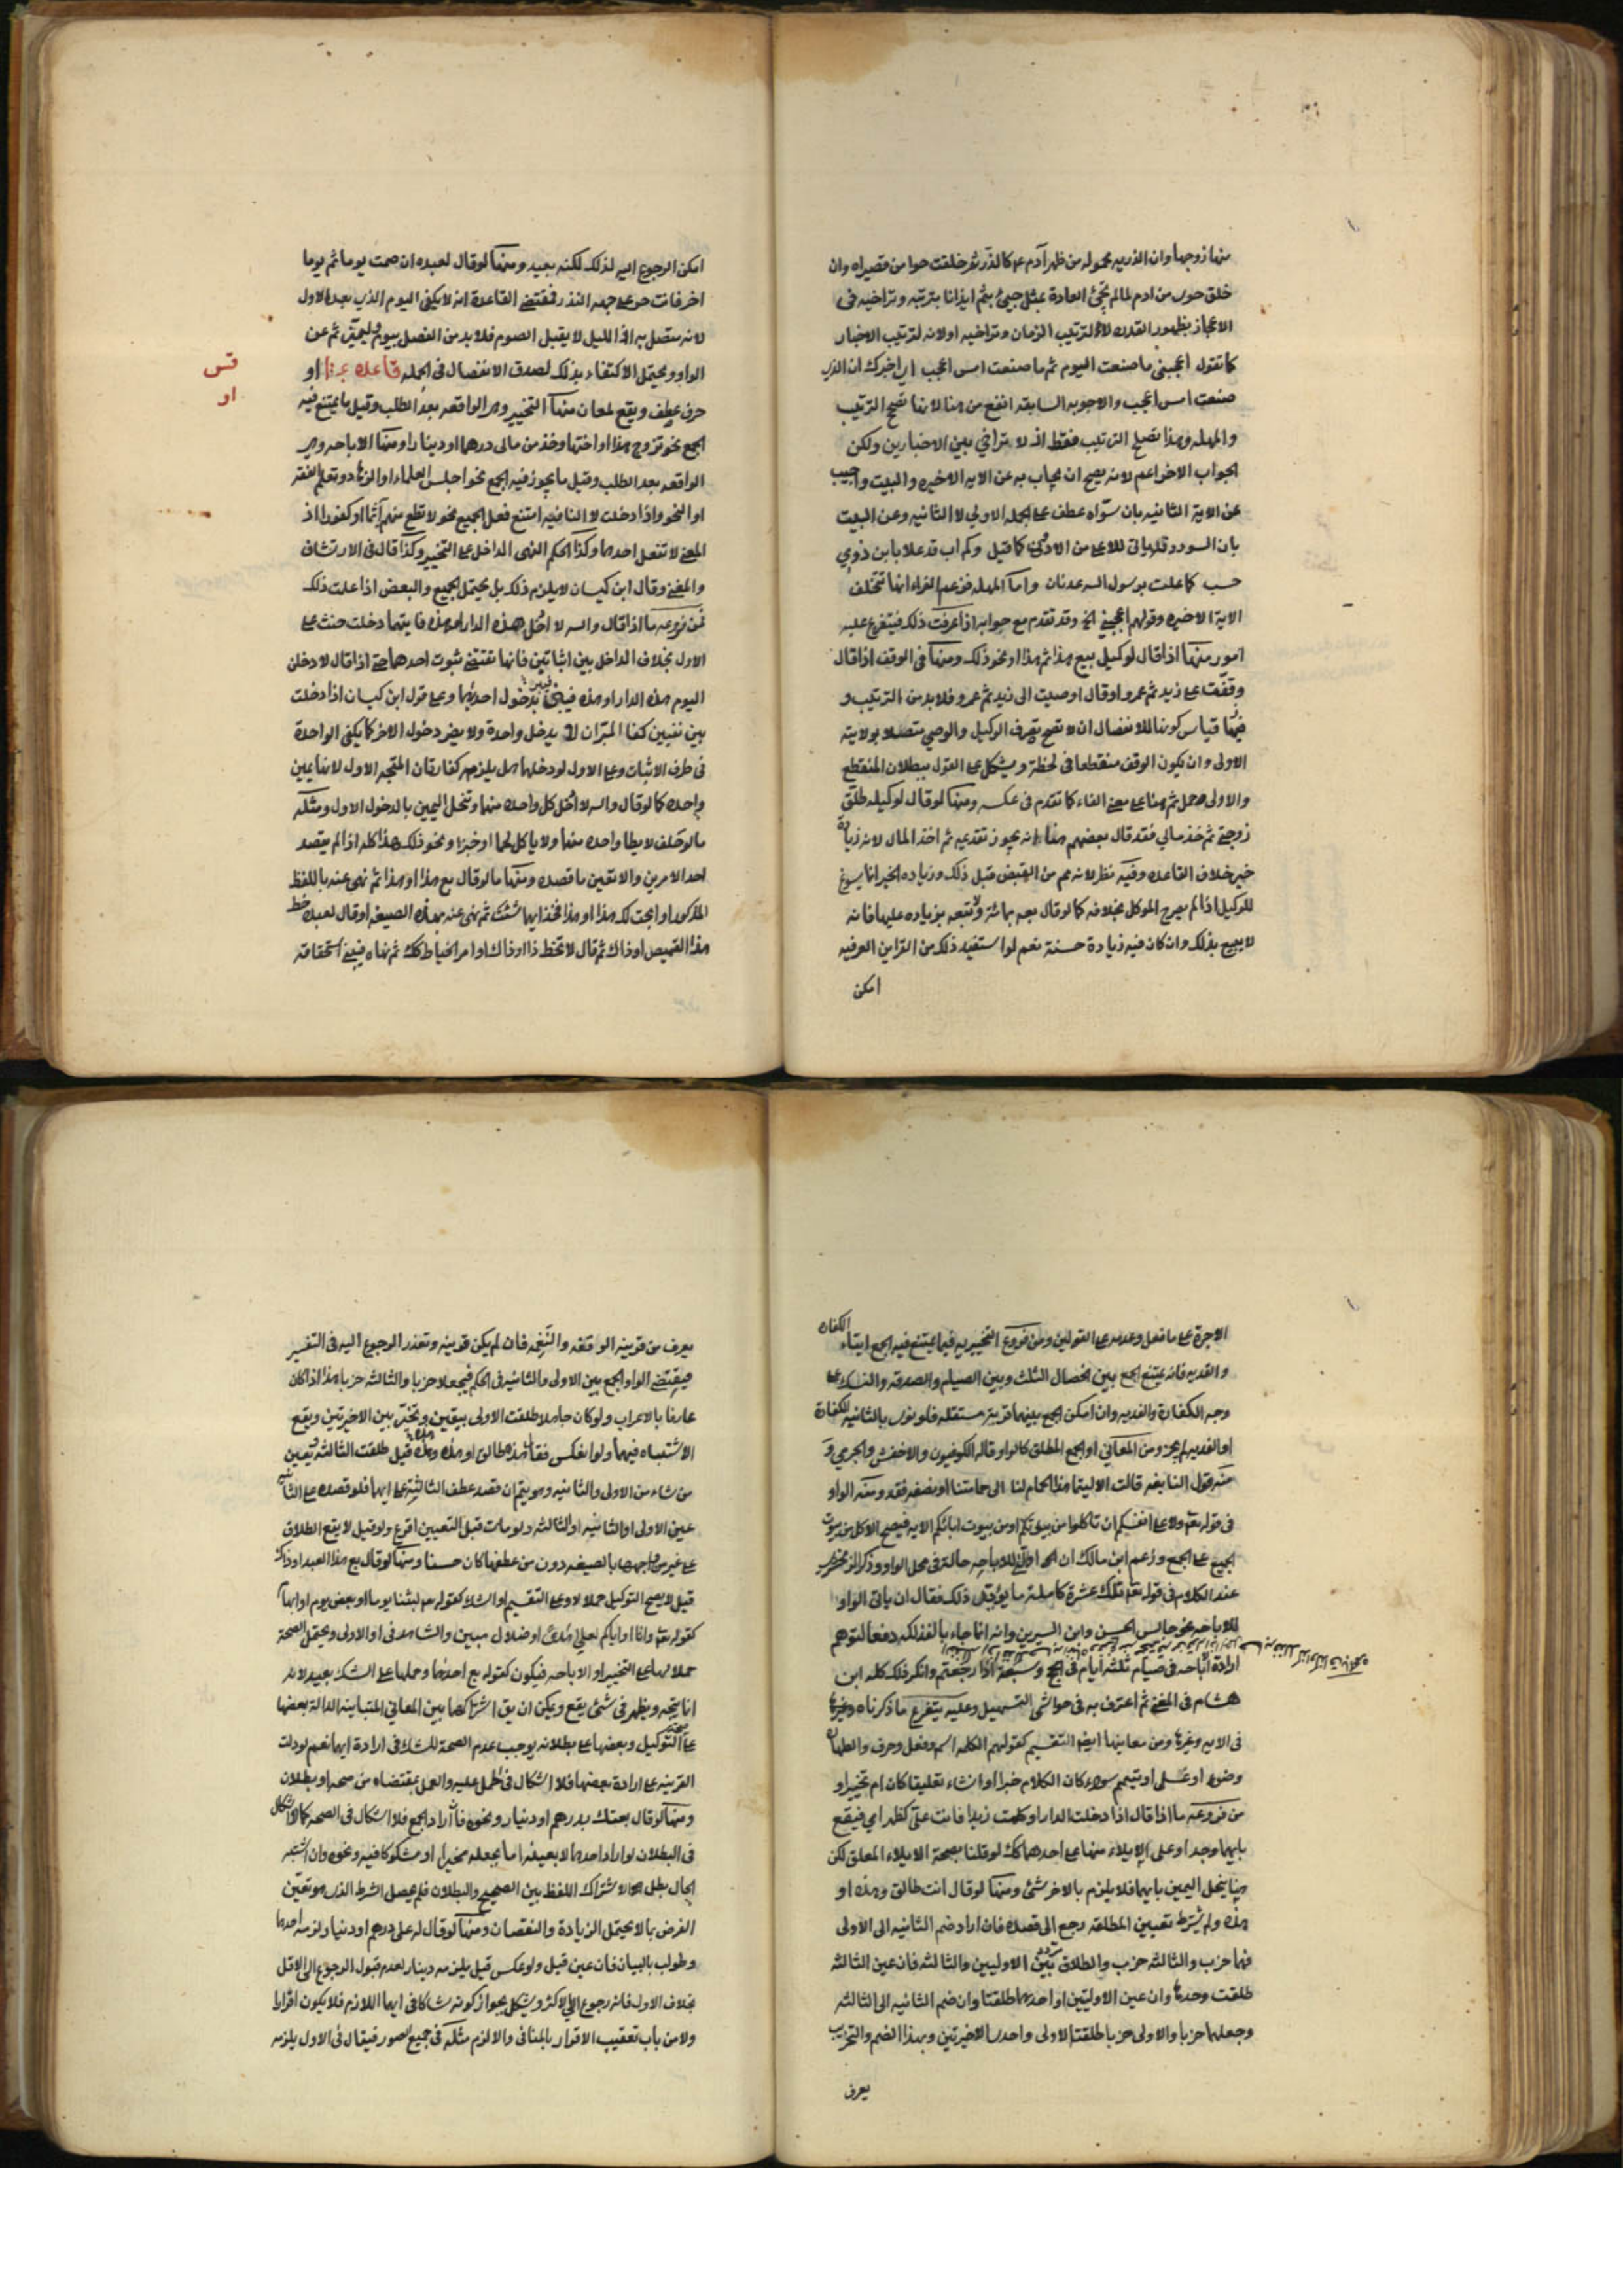 منها زوجها وان الذريه محموله من ظهر آدم ع كالذر ثم خلقت حوا من قصيراه وان
خلق حوى من ادم لما لم تجئ العادة بمثل جيئ بثم ايذانا بترتبه وتراخيه فى
الاعجاز بظهور القدره لا لترتيب الزمان وتراخيه اولانه لترتيب الاخبار
كما تقول اعجبنى ما صنعت اليوم ثم ما صنعت امس اعجب اى اخبرك ان الذى
صنعت امس اعجب والاجوبه السابقه انفع من هنا لانها تصح الترتيب
والمهله وهذا تصح الترتيب فقط اذ لا تراخي بين الاخبارين ولكن
الجواب الاخر اعم لانه يصح ان يجاب به عن الايه الاخيره والبيت واجيب
عن الاية الثانيه بان سواه عطف على الجمله الاولى لا الثانيه وعن البيت
بان السودد قد ياتى للاعلى من الادنى كما قيل وكم اب قد علا بابن ذوي
حسب كما علت برسول الله عدنان واما المهله فزعم الفراء انها تتخلف
الاية الاخيره وقولهم اعجبني الخ وقد تقدم مع جوابه اذا عرفت ذلك فيتفرع عليه
امور منها اذا قال لوكيل بيع هذا ثم هذا او نحو ذلك ومنها فى الوقف اذا قال
وقفت على زيد ثم عمرو او قال اوصيت الى زيد ثم عمرو فلا بد من الترتيب و
فيها قياس كونها للانفصال ان لا تصح تصرف الوكيل والوصي متصلا بولاية
الاولى وان يكون الوقف منقطعا فى لحظة ويشكل على القول ببطلان المنقطع
والاولى حمل ثم هنا على معنى الفاء كما تقدم فى عكسه ومنها لو قال لوكيله طلق
زوجتى ثم خذ مالي فقد قال بعضهم هنا انه يجوز تقديم ثم اخذ المال لانه زيادة
خير خلاف القاعده وفيه نظر لانه مم من القبض قبل ذلك وزياده الخير انما يسوغ
للوكيل اذا لم يصرح الموكل بخلافه كما لو قال بعه بمائة ولا تبعه بزياده عليها فانه
لا يبيع بذلك وان كان فيه زيادة حسنة نعم لو استفيد ذلك من القراين العرفيه
امكن
امكن الرجوع اليه لذلك لكنه بعيد ومنها لو قال لعبده ان صمت يوما ثم يوما
اخر فانت حر على جهه النذر فمقتضى القاعدة انه لا يكفى اليوم الذى بعد الاول
لانه متصل به اذ الليل لا يقبل الصوم فلا بد من الفصل بيوم ليميز ثم عن
الواو ويحتمل الاكتفاء بذلك لصدق الانفصال فى الجمله قاعده او
قس
او
حرف عطف ويقع لمعان منها التخيير وهى الواقعه بعد الطلب وقيل ما يمتنع فيه
الجمع نحو تزوج هذا او اختها وخذ من مالى درهما او دينارا ومنها الاباحه وهى
الواقعه بعد الطلب وقيل ما يجوز فيه الجمع نحو اجلس العلماء او الزهاد وتعلم الفقه
او النحو واذا دخلت لا الناهيه امتنع فعل الجميع نحو لا تطع منهم آثما او كفورا اذ
المعنى لا تفعل احدهما وكذا حكم النهى الداخل على التخيير وكذا قال فى الارتشاف
والمغنى وقال ابن كيسان لا يلزم ذلك بل يحتمل الجميع والبعض اذا علمت ذلك
فمن فروعه ما اذا قال والله لا ادخل هذه الدار او هذه فايتهما دخلت حنث على
الاول بخلاف الداخل بين اثباتين فانها تقتضى ثبوت احدهما حتى اذا قال لادخلن
اليوم هذه الدار او هذه فيبر بدخول احديهما وعلى قول ابن كيسان اذا دخلت
بين نفيين كفا للبر ان لا يدخل واحدة ولا يضر دخول الاخر كما يكفى الواحدة
فى طرف الاثبات وعلى الاول لو دخلهما هل يلزمه كفارتان المتجه الاول لانها يمين
واحده كما لو قال والله لا ادخل كل واحده منهما وتنحل اليمين بالدخول الاول ومثله
ما لو حلف لا يطا واحده منهما ولا ياكل لحما او خبزا ونحو ذلك هذا كله اذا لم يقصد
احد الامرين والا تعين ما قصده ومنها ما لو قال بع هذا او هذا ثم نهى عنه باللفظ
المذكور او ابحت لك هذا او هذا فخذ ايهما شئت ثم نهى عنه بهذه الصيغه او قال لعبده خط
هذا القميص او ذاك ثم قال لا تخط ذا او ذاك او امر الخياط كك ثم نهاه فيبنى استحقاقه
الاجرة على ما فعل وعدمه على القولين ومن فروع التخيير به فيما يمتنع فيه الجمع ايتاء الكفاره
والفديه فانه يمتنع الجمع بين الخصال الثلث وبين الصيام والصدقه والنسك على
وجه الكفارة والفديه وان امكن الجمع بينهما قربة مستقله فلو نوى بالثانيه الكفارة
او الفديه لم يجز ومن المعاني او الجمع المطلق كالواو قاله الكوفيون والاخفش والجرمي و
منه قول النابغه قالت الا ليتما هذا الحمام لنا الى حمامتنا او نصفه فقد ومنه الواو
فى قوله تعه ولا على انفسكم ان تاكلوا من بيوتكم او من بيوت ابائكم الايه فيصح الاكل من بيوت
الجميع على الجمع وزعم ابن مالك ان او التى للاباحه حالة فى محل الواو وذكر الزمخشرى
عند الكلام فى قوله تعه تلك عشرة كاملة ما يوافق ذلك فقال ان ياتى الواو
للاباحه نحو جالس الحسن وابن السيرين وانه انما جاء بالفذلكه دفعا لتوهم
ارادة اباحه فى صيام ثلثه ايام فى الحج وسبعة اذا رجعتم وانكر ذلك كله ابن
هشام فى المغنى ثم اعترف به فى حواشى التسهيل وعليه يتفرع ما ذكرناه وغيرها
فى الايه وغيرها ومن معانيها ايضا التقسيم كقولهم الكلمه اسم وفعل وحرف والطهاره
وضوء او غسل او تيمم سواء كان الكلام خبرا او انشاء تعليقا كان ام تخييرا و
من فروعه ما اذا قال اذا دخلت الدار او كلمت زيدا فانت على كظهر امي فيقع
بايهما وجد او على الايلاء منها على احدهما كك لو قلنا بصحة الايلاء المعلق لكن
هنا ينحل اليمين بايهما فلا يلزم بالاخر شئ ومنها لو قال انت طالق وهذه او
هذه ولم يشترط تعيين المطلقه رجع الى قصده فان اراد ضم الثانيه الى الاولى
فهما حزب والثالثه حزب والطلاق تردد بين الاوليين والثالثه فان عين الثالثه
طلقت وحدها وان عين الاوليين او احديهما طلقتا وان ضم الثانيه الى الثالثه
وجعلهما حزبا والاولى حزبا طلقت الاولى واحدى الاخيرتين وهذا الضم والتحزيب
يعرف
يعرف من قرينه الوقفه والنغمه فان لم يكن قرينه وتعذر الرجوع اليه فى التفسير
فيقتضى الواو الجمع بين الاولى والثانيه فى الحكم فيجعلا حزبا والثالثه حزبا هذا اذا كان
عارفا بالاعراب ولو كان جاهلا طلقت الاولى بيقين ويتخير بين الاخيرتين ويقع
الاشتباه فيهما ولو انعكس فقال هذه طالق او هذه وهذه قيل طلقت الثالثه وتعيين
من شاء من الاولى والثانيه وهو يتم ان قصد عطف الثالثه على ايهما فلو قصده على الثانيه
عين الاولى او الثانيه والثالثه ولو مات قبل التعيين اقرع ولو قيل لا يقع الطلاق
على غير من واجهها بالصيغه دون من عطفها كان حسنا ومنها لو قال بع هذا العبد او ذاك
قيل لا يصح التوكيل حملا لاو على التقسيم او الشك كقوله تعه لبثنا يوما او بعض يوم او ابهام
كقوله تعه وانا او اياكم لعلى هدى او ضلال مبين والشاهد فى او الاولى ويحتمل الصحة
حملا لها على التخيير او الاباحه فيكون كقوله بع احدهما وحملها على الشك بعيد لانه
انما يتجه ويظهر فى شئ يقع ويمكن ان يق اشتراكها بين المعاني المتباينه الدالة بعضها
على صحه التوكيل وبعضها على بطلانه يوجب عدم الصحة للشك فى ارادة ايها نعم لو دلت
القرينه على ارادة بعضها فلا اشكال فى الحمل عليه والعمل بمقتضاه من صحه او بطلان
ومنها لو قال بعتك بدرهم او دينار ونحوه فان اراد الجمع فلا اشكال فى الصحه كما لا اشكال
فى البطلان لو اراد احدهما لا بعينه اما بجعله مخيرا او مشكوكا فيه ونحوه وان اشتبه
الحال بطل الاشتراك اللفظ بين الصحيح والبطلان فلم يحصل الشرط الذى هو تعين
الفرض بما لا يحتمل الزيادة والنقصان ومنها لو قال له على درهم او دينار لزمه احدهما
وطولب بالبيان فان عين قبل ولو عكس قيل يلزمه دينار لعدم قبول الرجوع الى الاقل
بخلاف الاول فانه رجوع الى الاكثر ويشكل بجواز كونه شاكا فى ايهما اللازم فلا يكون اقرارا
ولا من باب تعقيب الاقرار بالمنافى والا لزم مثله فى جميع الصور فيقال فى الاول يلزمه